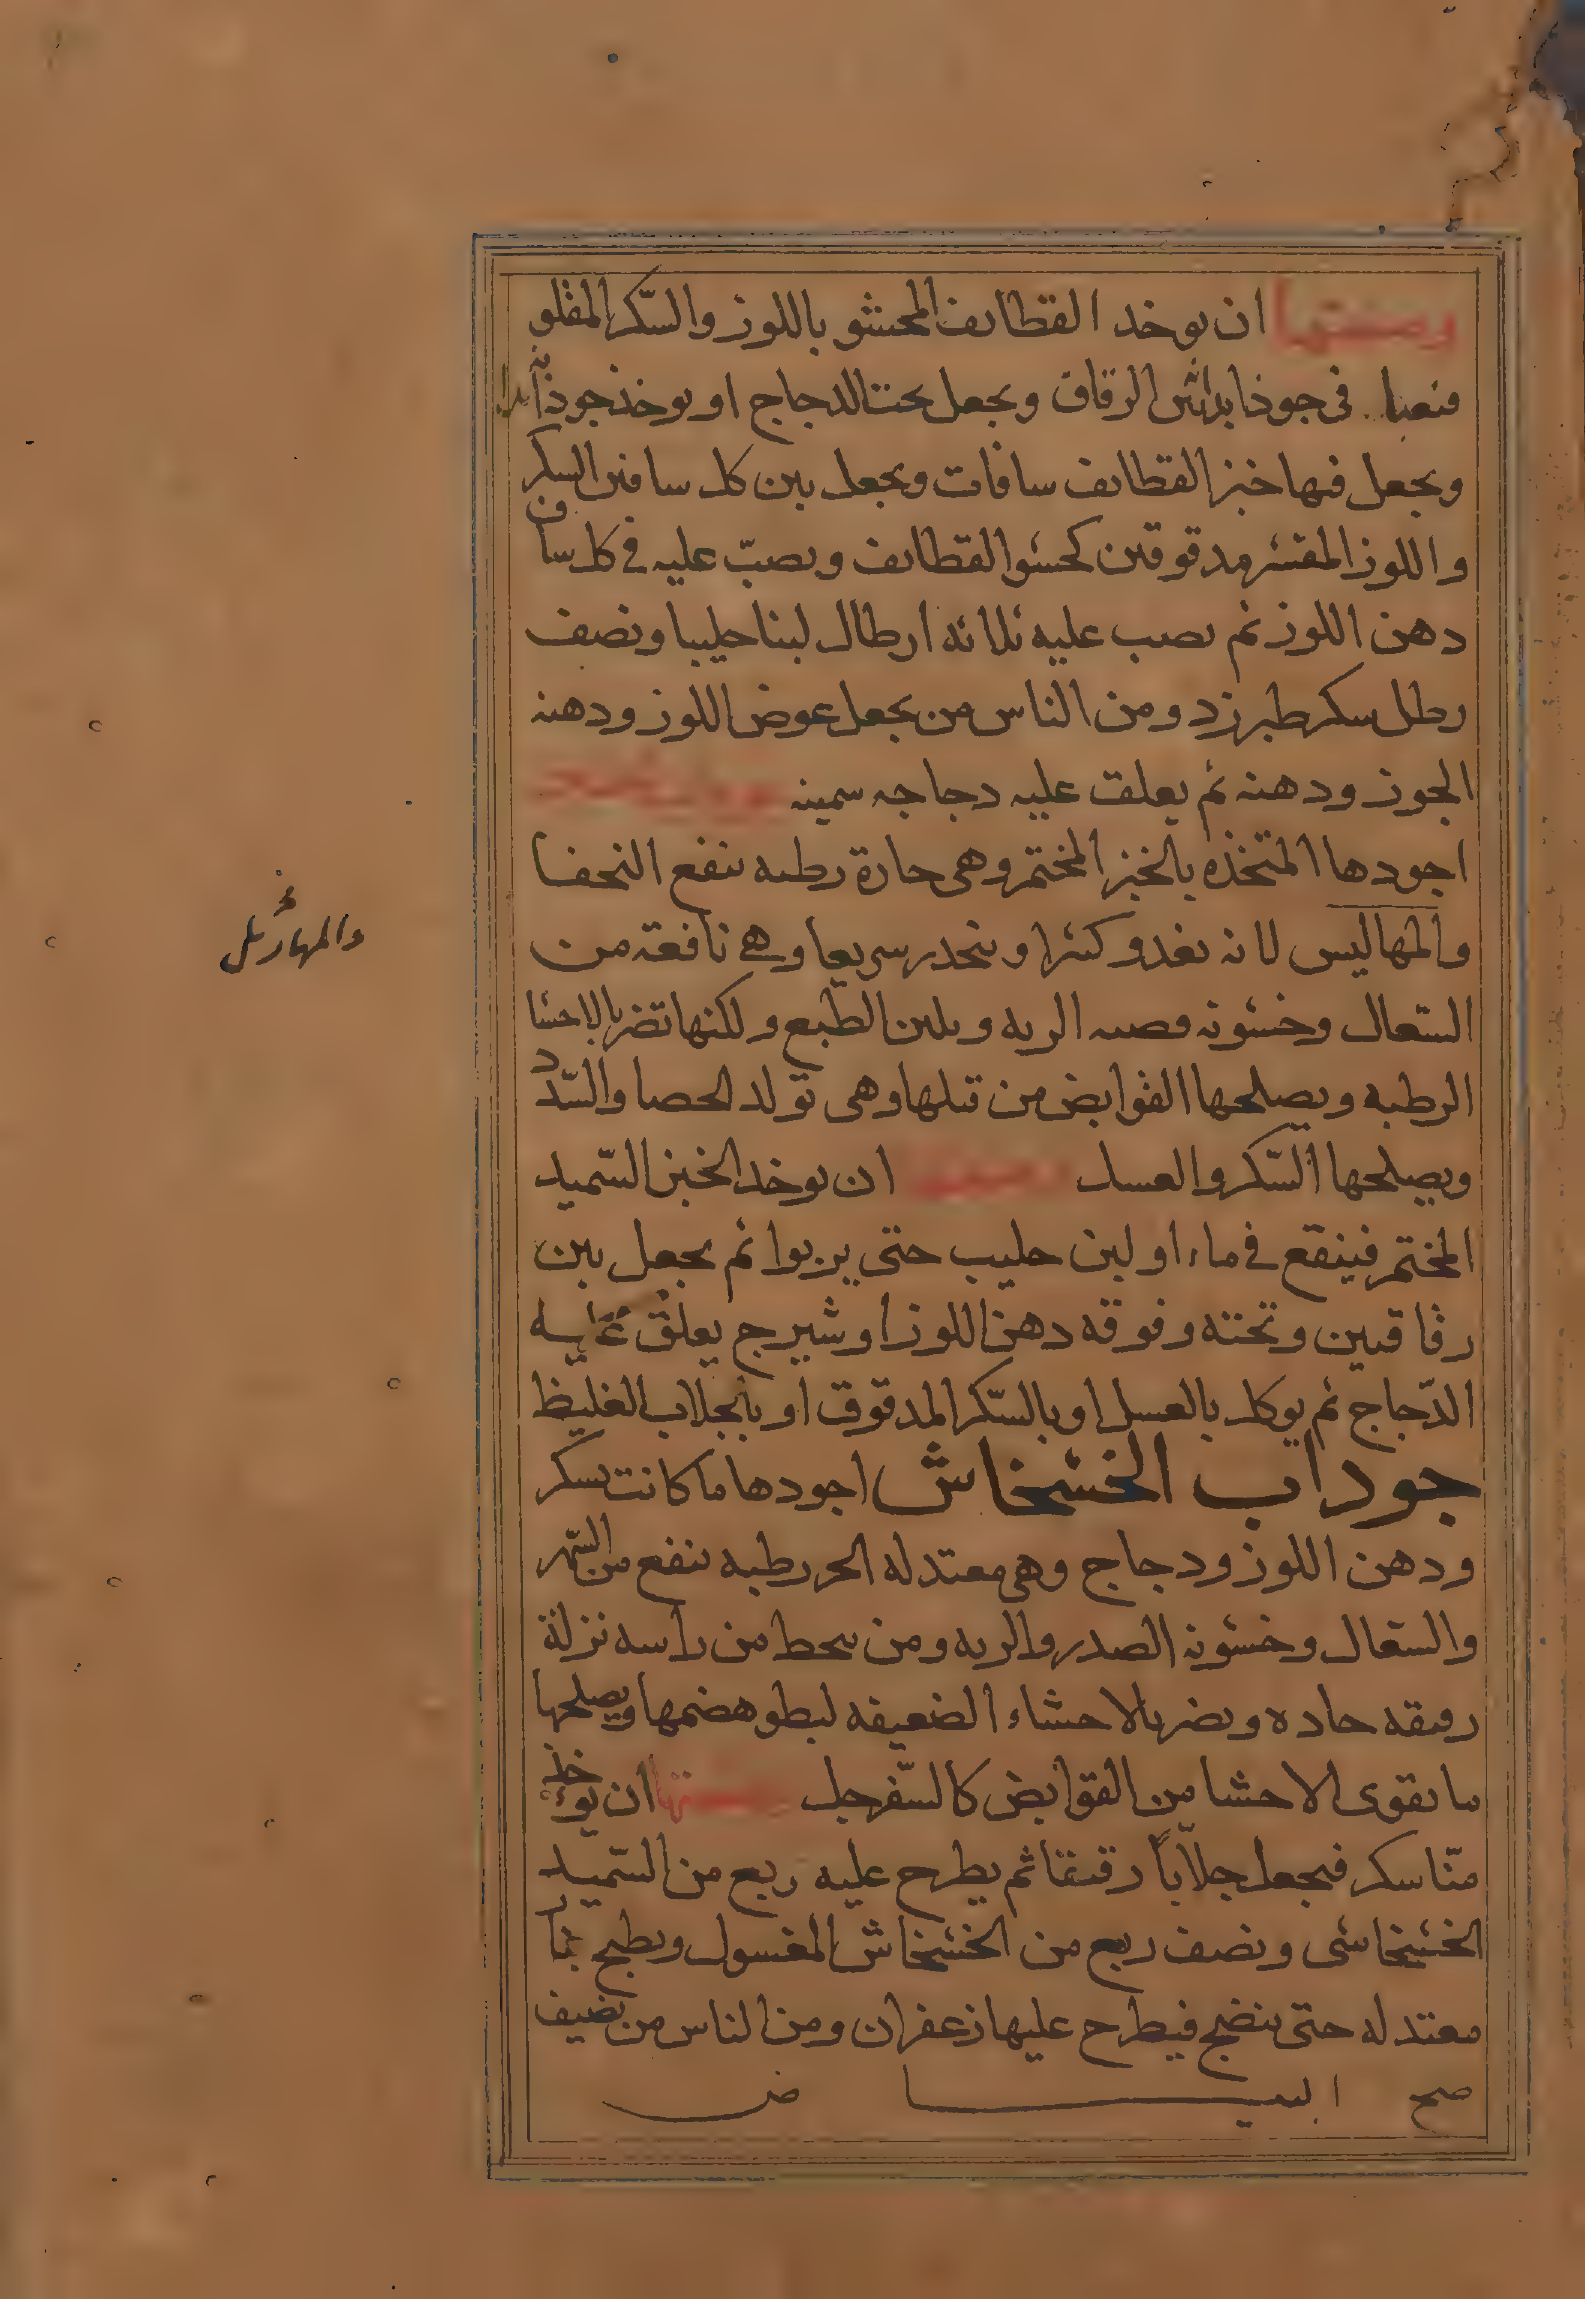 وصنعتها ان يوخد القطايف المحشو باللوز والسّكر المقلو
فيعبا في جوذابه الرقاق ويجعل تحت الدجاج او يوخذ جوذابه
ويجعل فيها خبز القطايف سافات ويجعل بين كل سافين السكر
واللوز المقشر مدقوقين كحشو القطايف ويصبّ عليه في كل ساف
دهن اللوز ثم يصب عليه ثلاثه ارطال لبنا حليبا ونصف
رطل سكر طبرزد ومن الناس من يجعل عوض اللوز ودهنه
الجوز ودهنه ثم يعلق عليه دجاجه سمينه
اجودها المتخذه بالخبز المختمر وهي حارة رطبه ينفع النحفا
والمهاليس لانه يغدو كثيرا وينحدر سريعا وهي نافعة من
السّعال وخشونه قصبه الريه ويلين الطبع ولكنها تضر بالاحشا
الرطبه ويصلحها القوابض من قبلها وهي تولد الحصا والسّدد
ويصلحها السّكر والعسل وصنعتها ان يوخد الخبز السّميد
المختمر فينقع في ماء او لبن حليب حتى يربوا ثم يجعل بين
رقاقتين وتحته وفوقه دهن اللوز او شيرج يعلق عليه
الدّجاج ثم يوكل بالعسل او بالسّكر المدقوق او بالجلاب الغليظ
جوداب الخشخاش اجودها ما كانت بسكر
ودهن اللوز ودجاج وهي معتدله الحر رطبه ينفع من السّهر
والسّعال وخشونه الصدر والريه ومن ينحط من راسه نزلة
رقيقه حاده ويضر بالاحشاء الضعيفه لبطو هضمها ويصلحها
ما يقوى الاحشا من القوابض كالسّفرجل وصنعتها ان يوخذ
منّا سكر فيجعل جلّاباً رقيقا ثم يطرح عليه ربع من السّميد
الخشخاشى ونصف ربع من الخشخاش المغسول ويطبخ بنار
معتدله حتى ينضج فيطرح عليها زعفران ومن الناس من يضيف
صح البيـــاض
والمهازيل